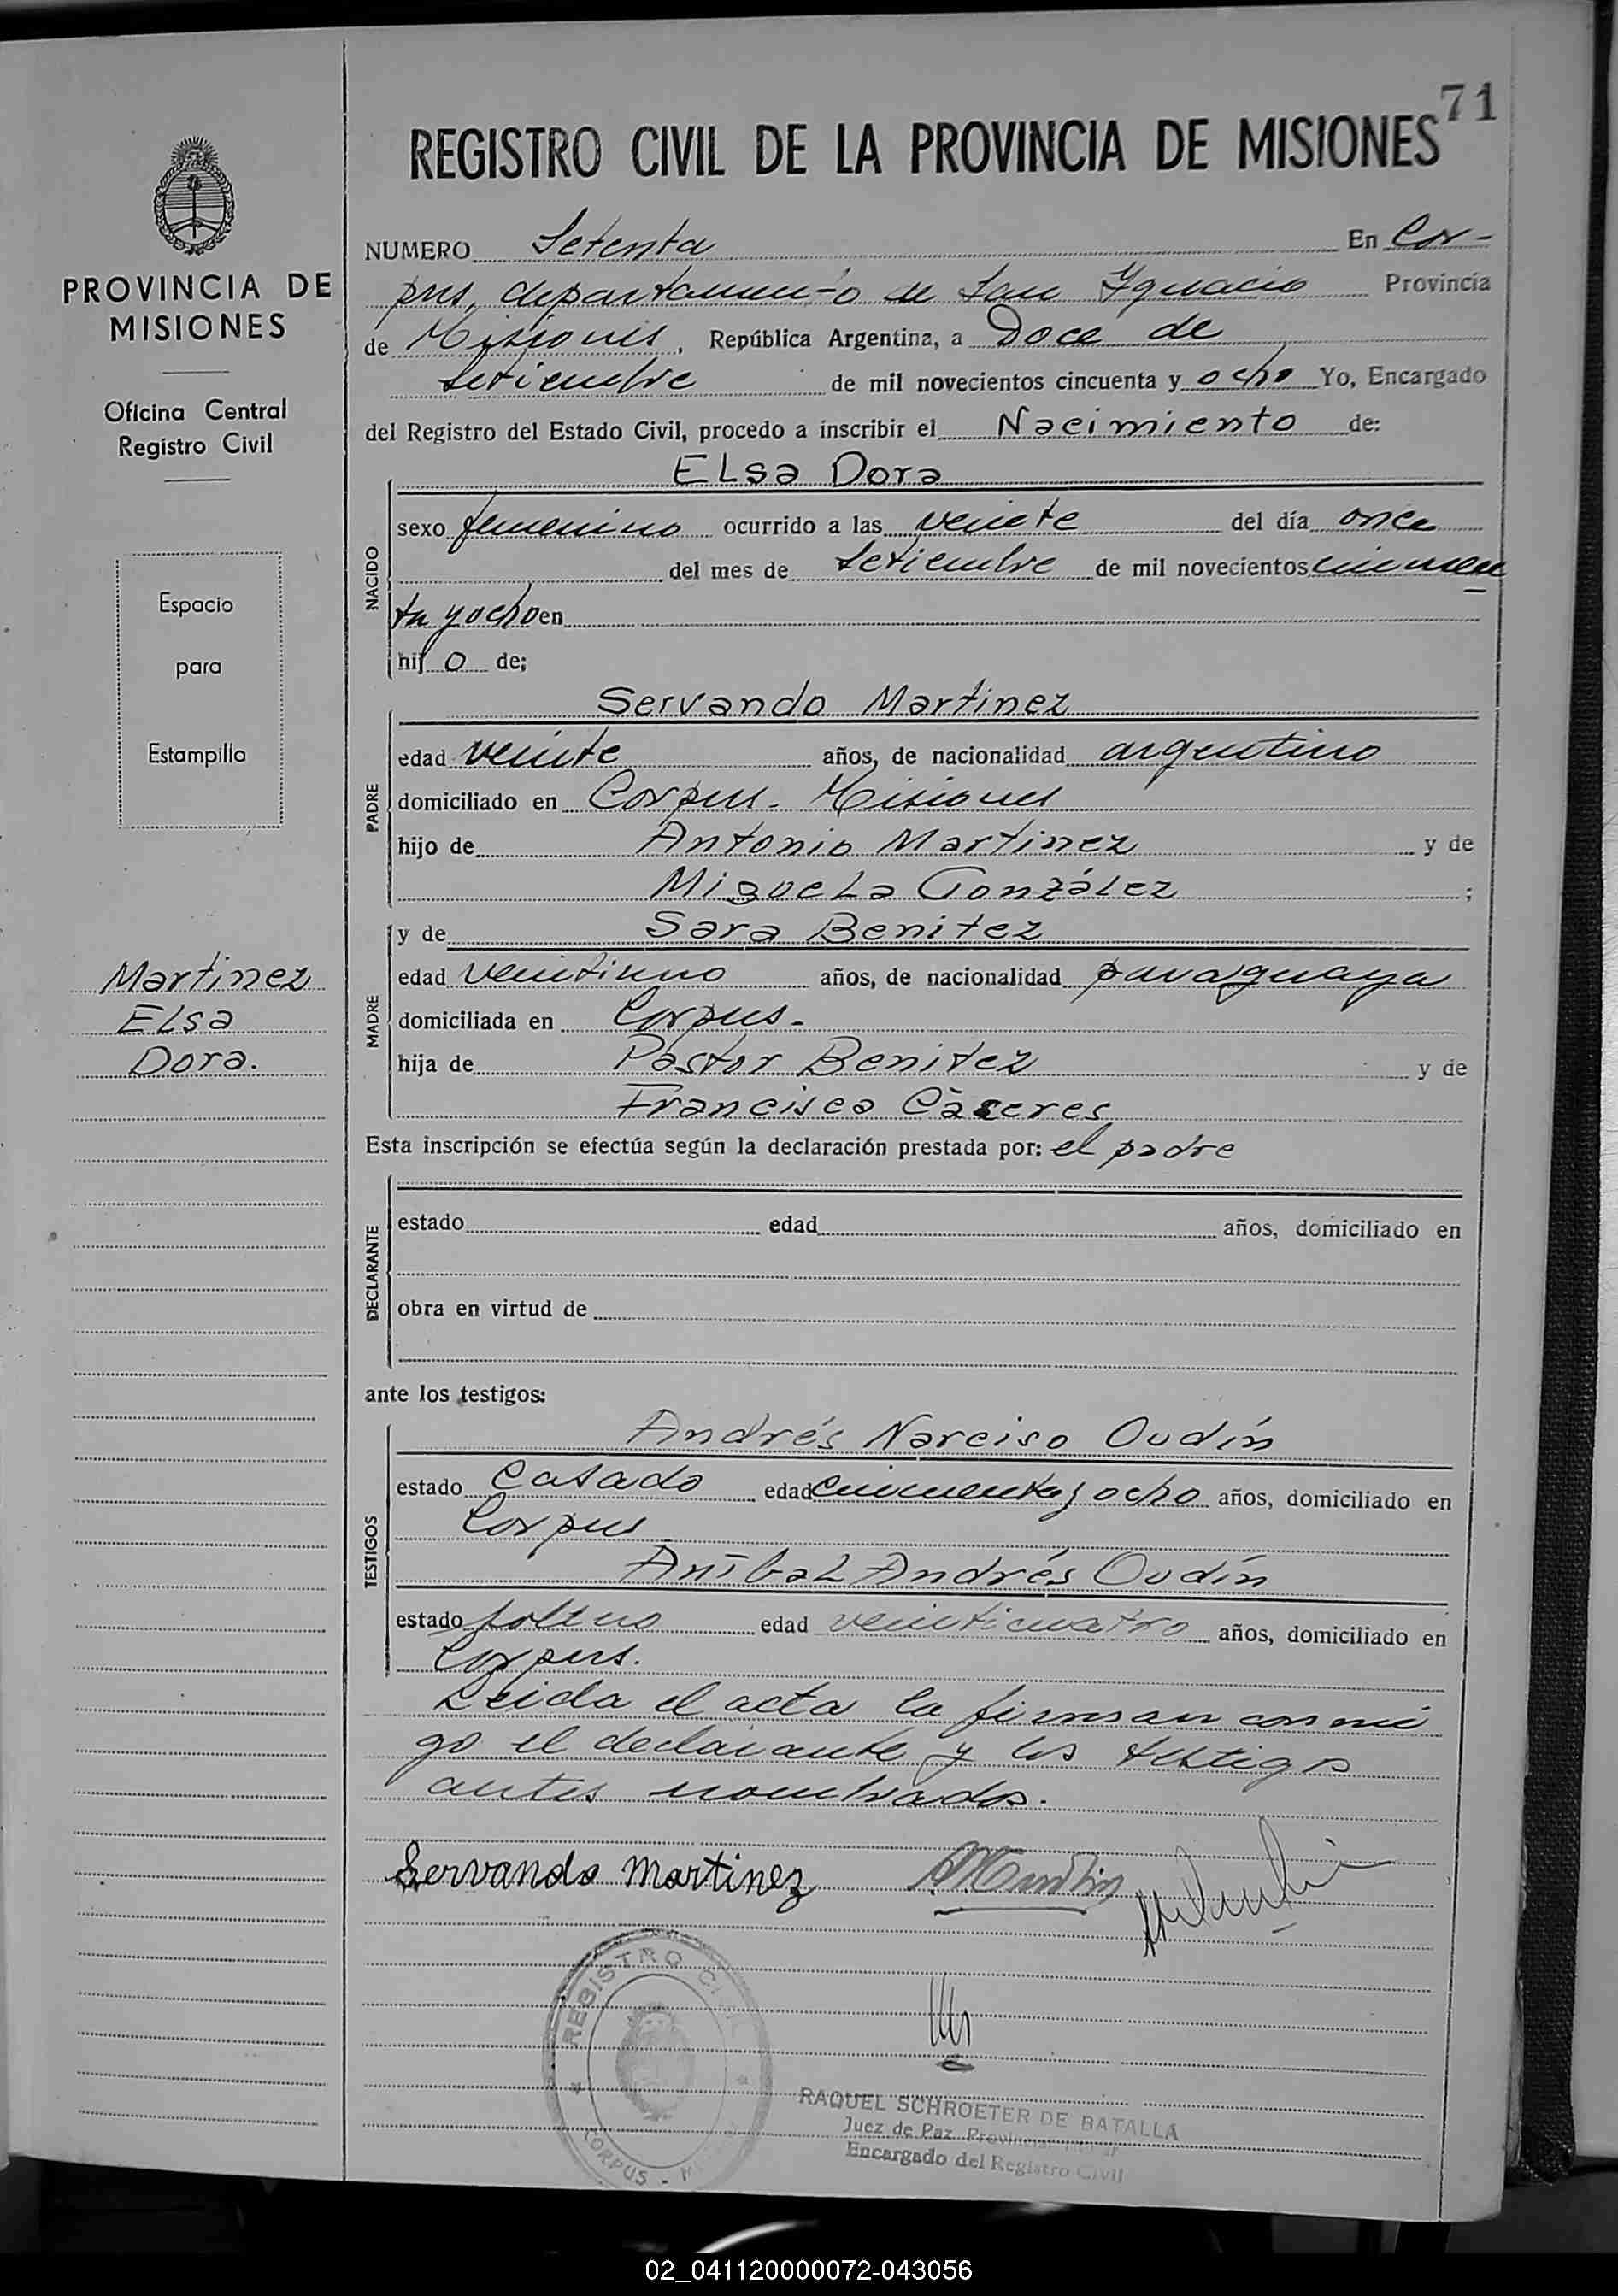 71
REGISTRO CIVIL DE LA PROVINCIA DE MISIONES
PROVINCIA DE
MISIONES
Oficina Central
Registro Civil
Espacio
para
Estampilla
Martinez
Elsa
Dora.
NUMERO Setenta En Cor-
pus, departamento de San Ygnacio Provincia
de Misiones, República Argentina, a Doce de
Setiembre de mil novecientos cincuenta y ocho Yo, Encargado
del Registro del Estado Civil, procedo a inscribir el Nacimiento de:
NACIDO
Elsa Dora
sexo femenino ocurrido a las veinte del día once
del mes de Setiembre de mil novecientos cincuen
ta y ocho en
hijo de;
PADRE
Servando Martinez
edad veinte años, de nacionalidad argentino
domiciliado en Corpus - Misiones
hijo de Antonio Martinez y de
Miguela González ;
MADRE
y de Sara Benitez
edad veintiuno años, de nacionalidad paraguaya
domiciliada en Corpus.-
hija de Pastor Benitez y de
Francisca Càceres
Esta inscripción se efectúa según la declaración prestada por: el padre
DECLARANTE
estado edad años, domiciliado en
obra en virtud de
ante los testigos:
TESTIGOS
Andrés Narciso Oudín
estado Casado edad cincuenta y ocho años, domiciliado en
Corpus
Aníbal Andrés Oudín
estado soltero edad veinticuatro años, domiciliado en
Corpus.
Leida el acta la firman conmi
go el declarante y los testigos
antes nombrados.
Servando Martinez
REGISTRO CIVIL
CORPUS - M
RAQUEL SCHROETER DE BATALLA
Juez de Paz Provincial
Encargado del Registro Civil
02_041120000072-043056